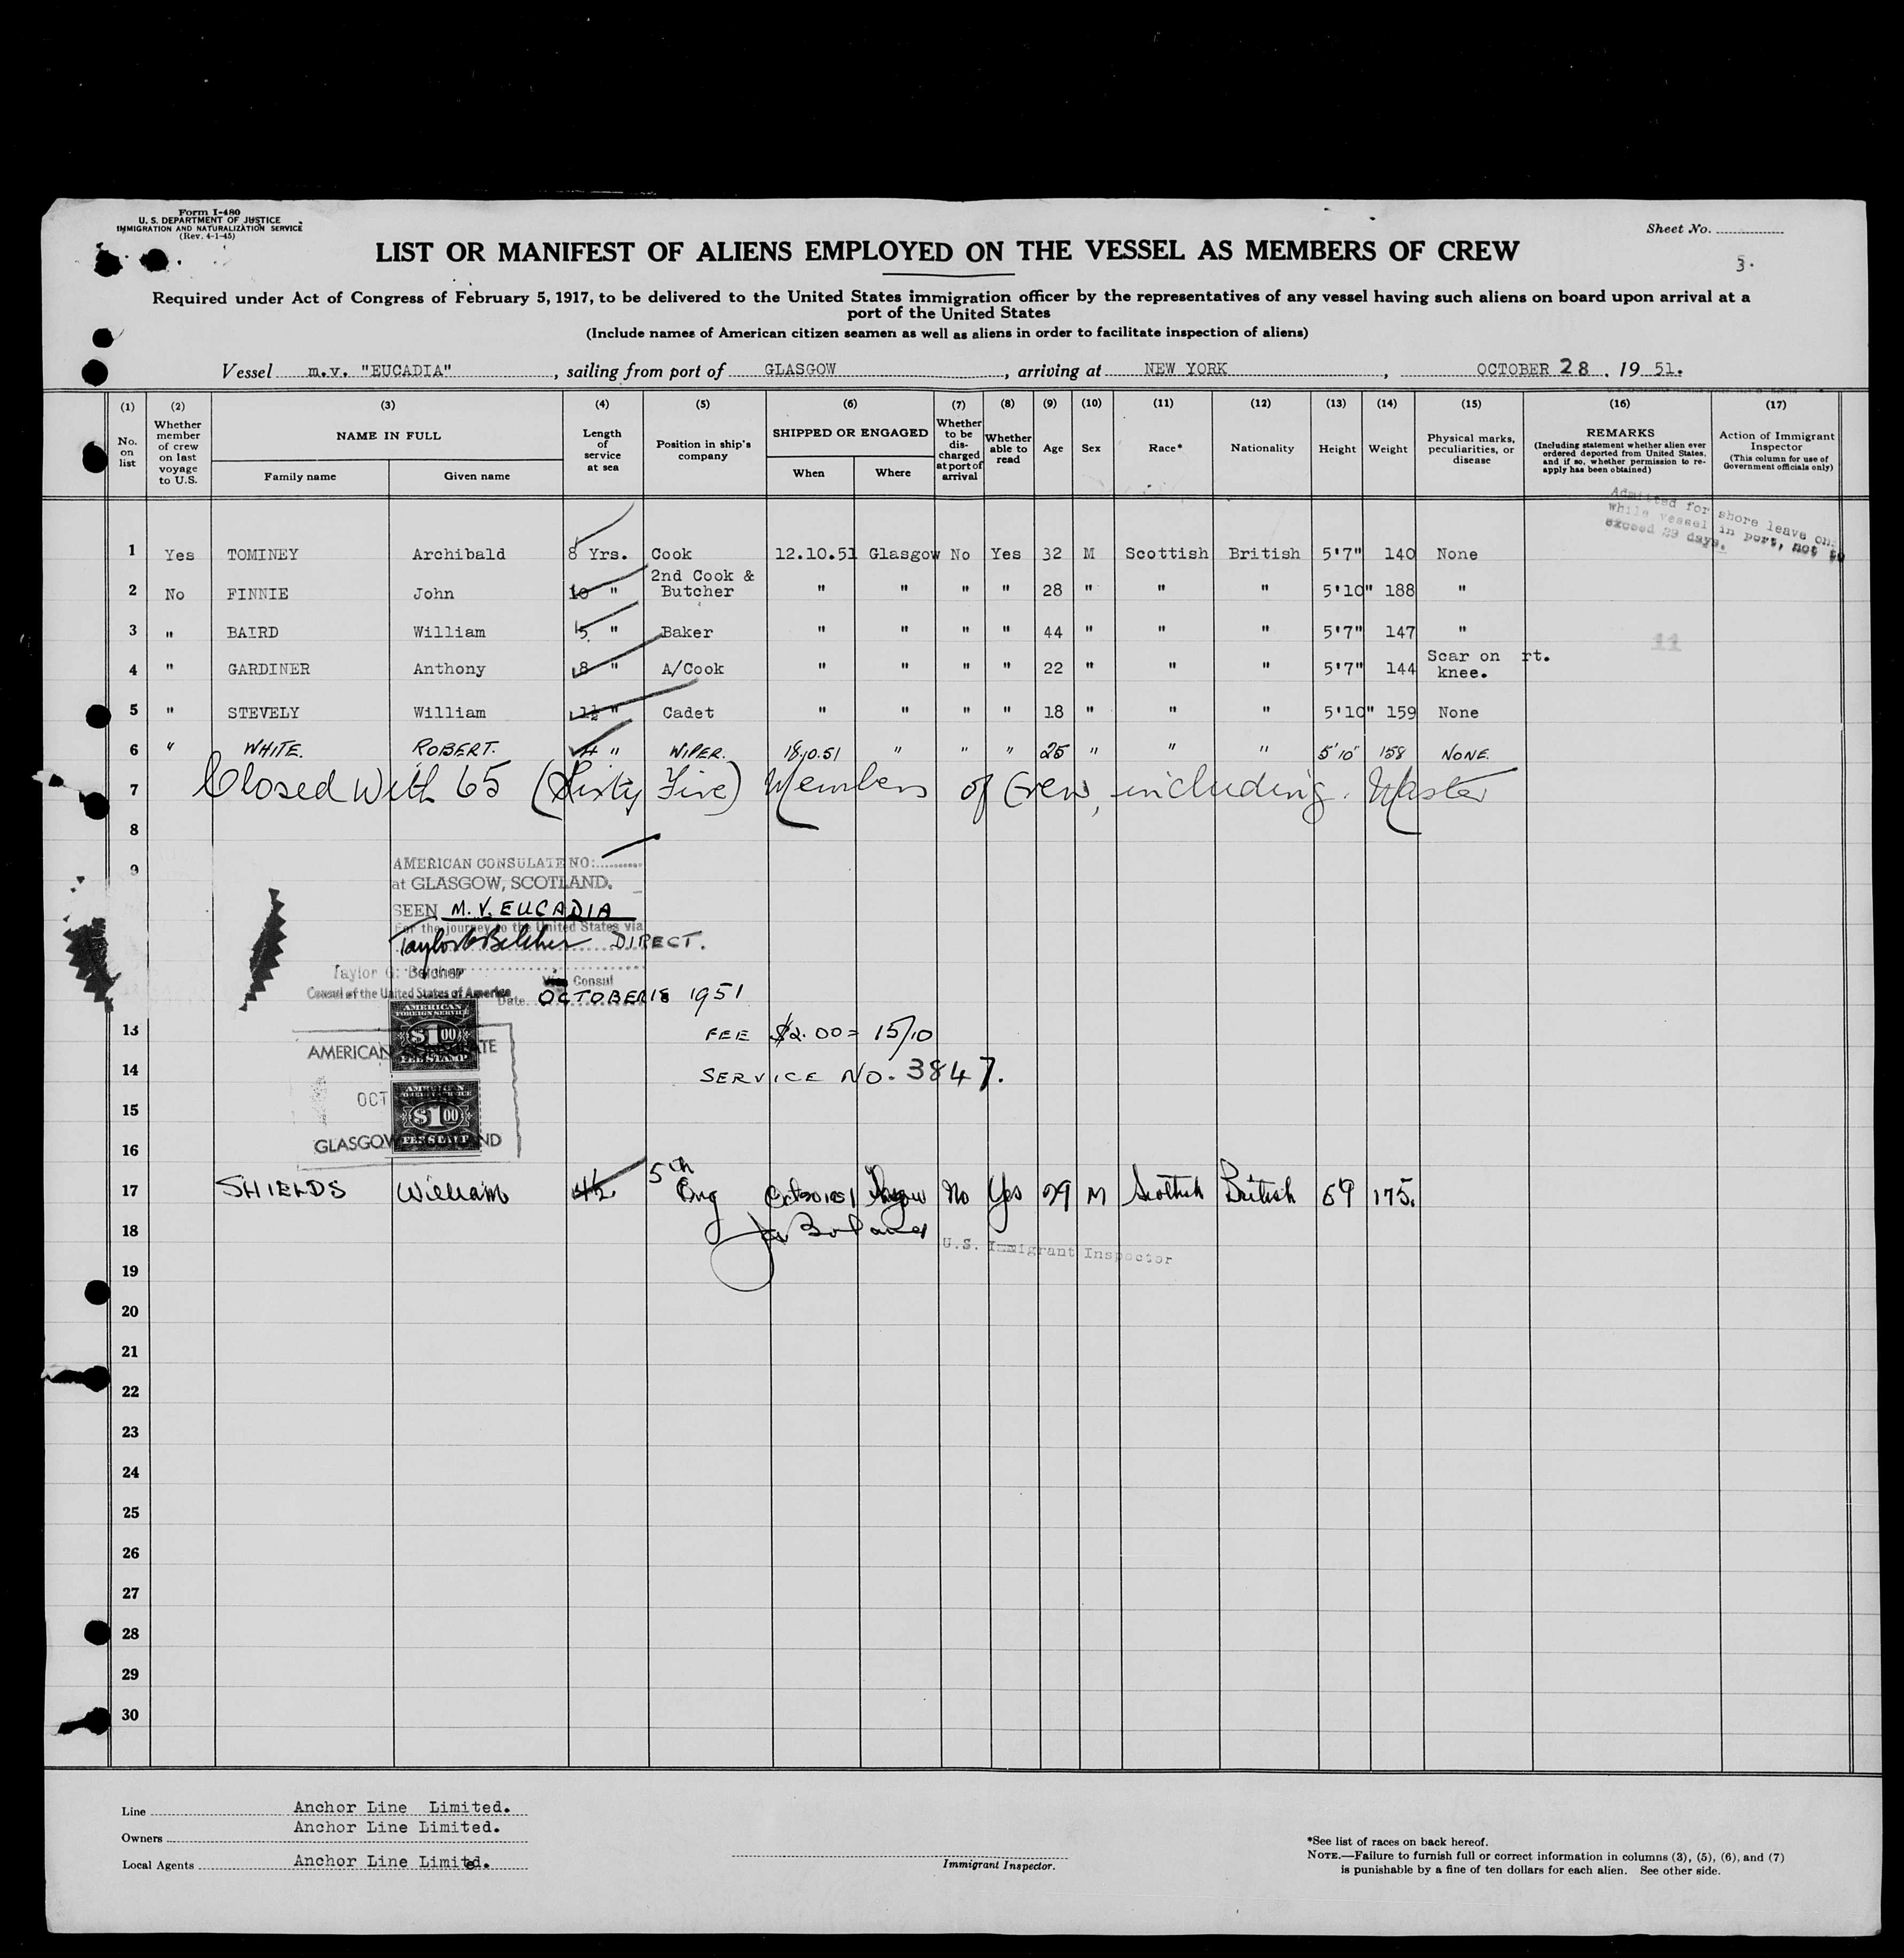 Form I-480
U. S. DEPARTMENT OF JUSTICE
IMMIGRATION AND NATURALIZATION SERVICE
(Rev. 4-1-45)
Sheet No.
LIST OR MANIFEST OF ALIENS EMPLOYED ON THE VESSEL AS MEMBERS OF CREW
3.
Required under Act of Congress of February 5, 1917, to be delivered to the United States immigration officer by the representatives of any vessel having such aliens on board upon arrival at a
port of the United States
(Include names of American citizen seamen as well as aliens in order to facilitate inspection of aliens)
Vessel m.v. "EUCADIA", sailing from port of GLASGOW, arriving at NEW YORK, OCTOBER 28, 19 51.
(1) (2) (3) (4) (5) (6) (7) (8) (9) (10) (11) (12) (13) (14) (15) (16) (17)
No. on list
Whether member of crew on last voyage to U.S.
NAME IN FULL
Family name Given name
Length of service at sea
Position in ship's company
SHIPPED OR ENGAGED
When Where
Whether to be discharged at port of arrival
Whether able to read
Age
Sex
Race*
Nationality
Height
Weight
Physical marks, peculiarities, or disease
REMARKS
(Including statement whether alien ever ordered deported from United States, and if so, whether permission to re-apply has been obtained)
Action of Immigrant Inspector
(This column for use of Government officials only)
Admitted for shore leave on
while vessel in port, not to
exceed 29 days.
1 Yes TOMINEY Archibald 8 Yrs. Cook 12.10.51 Glasgow No Yes 32 M Scottish British 5'7" 140 None
2 No FINNIE John 10 " 2nd Cook & Butcher " " " " 28 " " " 5'10" 188 "
3 " BAIRD William 5 " Baker " " " " 44 " " " 5'7" 147 "
11
4 " GARDINER Anthony 8 " A/Cook " " " " 22 " " " 5'7" 144 Scar on rt. knee.
5 " STEVELY William 1½ " Cadet " " " " 18 " " " 5'10" 159 None
6 " WHITE. ROBERT. 4 " WIPER. 18.10.51 " " " 25 " " " 5'10" 158 NONE.
7 Closed with 65 (Sixty Five) Members of Crew, including Master
8
9
AMERICAN CONSULATE NO:
at GLASGOW, SCOTLAND.
SEEN M.V. EUCADIA
For the journey to the United States via
Taylor G Belcher DIRECT.
Taylor G. Belcher
Vice Consul
Consul of the United States of America
Date OCTOBER 18 1951
AMERICAN FOREIGN SERVICE
$1.00
FEE STAMP
13
FEE $2.00 = 15/10
AMERICAN CONSULATE
14
SERVICE NO. 3847.
OCT
AMERICAN FOREIGN SERVICE
$1.00
FEE STAMP
15
GLASGOW SCOTLAND
16
17 SHIELDS William 4½ 5th Eng Glasgow No Yes 29 M Scottish British 5 9 175.
18
U.S. Immigrant Inspector
19
20
21
22
23
24
25
26
27
28
29
30
Line Anchor Line Limited.
Owners Anchor Line Limited.
Local Agents Anchor Line Limited.
Immigrant Inspector.
*See list of races on back hereof.
NOTE.—Failure to furnish full or correct information in columns (3), (5), (6), and (7)
is punishable by a fine of ten dollars for each alien. See other side.